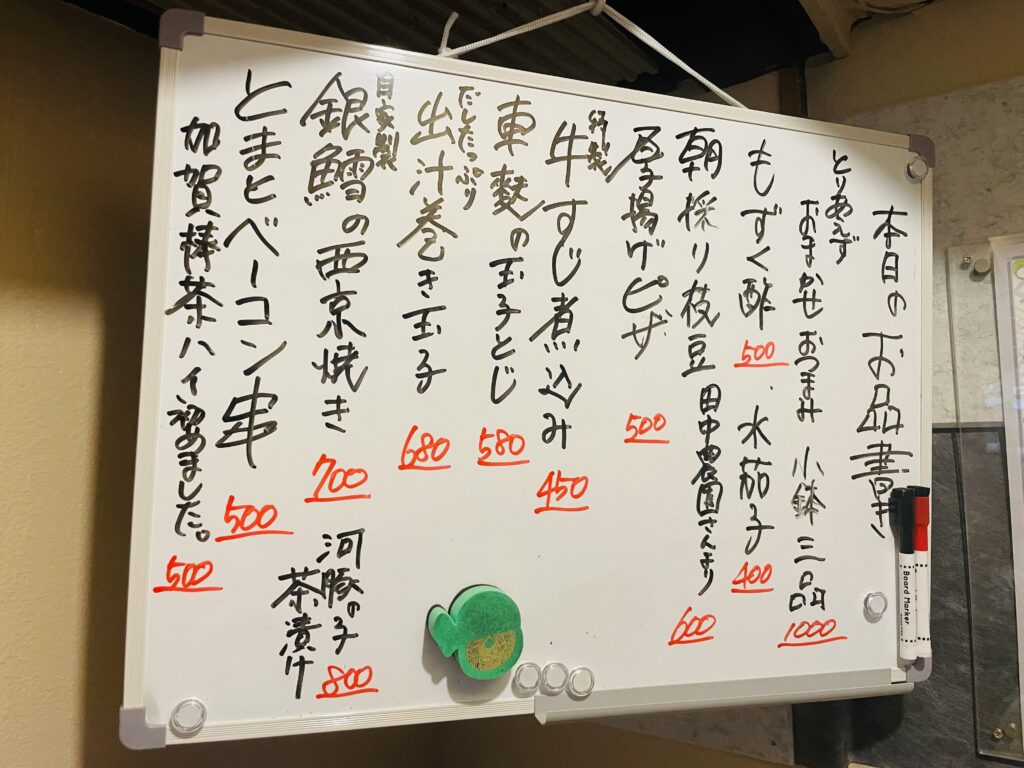 本日のお品書き
とりあえず
おまかせ おつまみ 小鉢 三品 1000
もずく酢 500 . 水茄子 400
朝採り枝豆 田中農園さんより 600
厚揚げピザ 500
特製
牛すじ煮込み 450
車麩の玉子とじ 580
だしたっぷり
出汁巻き玉子 680
自家製
銀鱈の西京焼き 700
河豚の子
茶漬け 800
とまとベーコン串 500
加賀棒茶ハイ初めました。 500
Board Marker